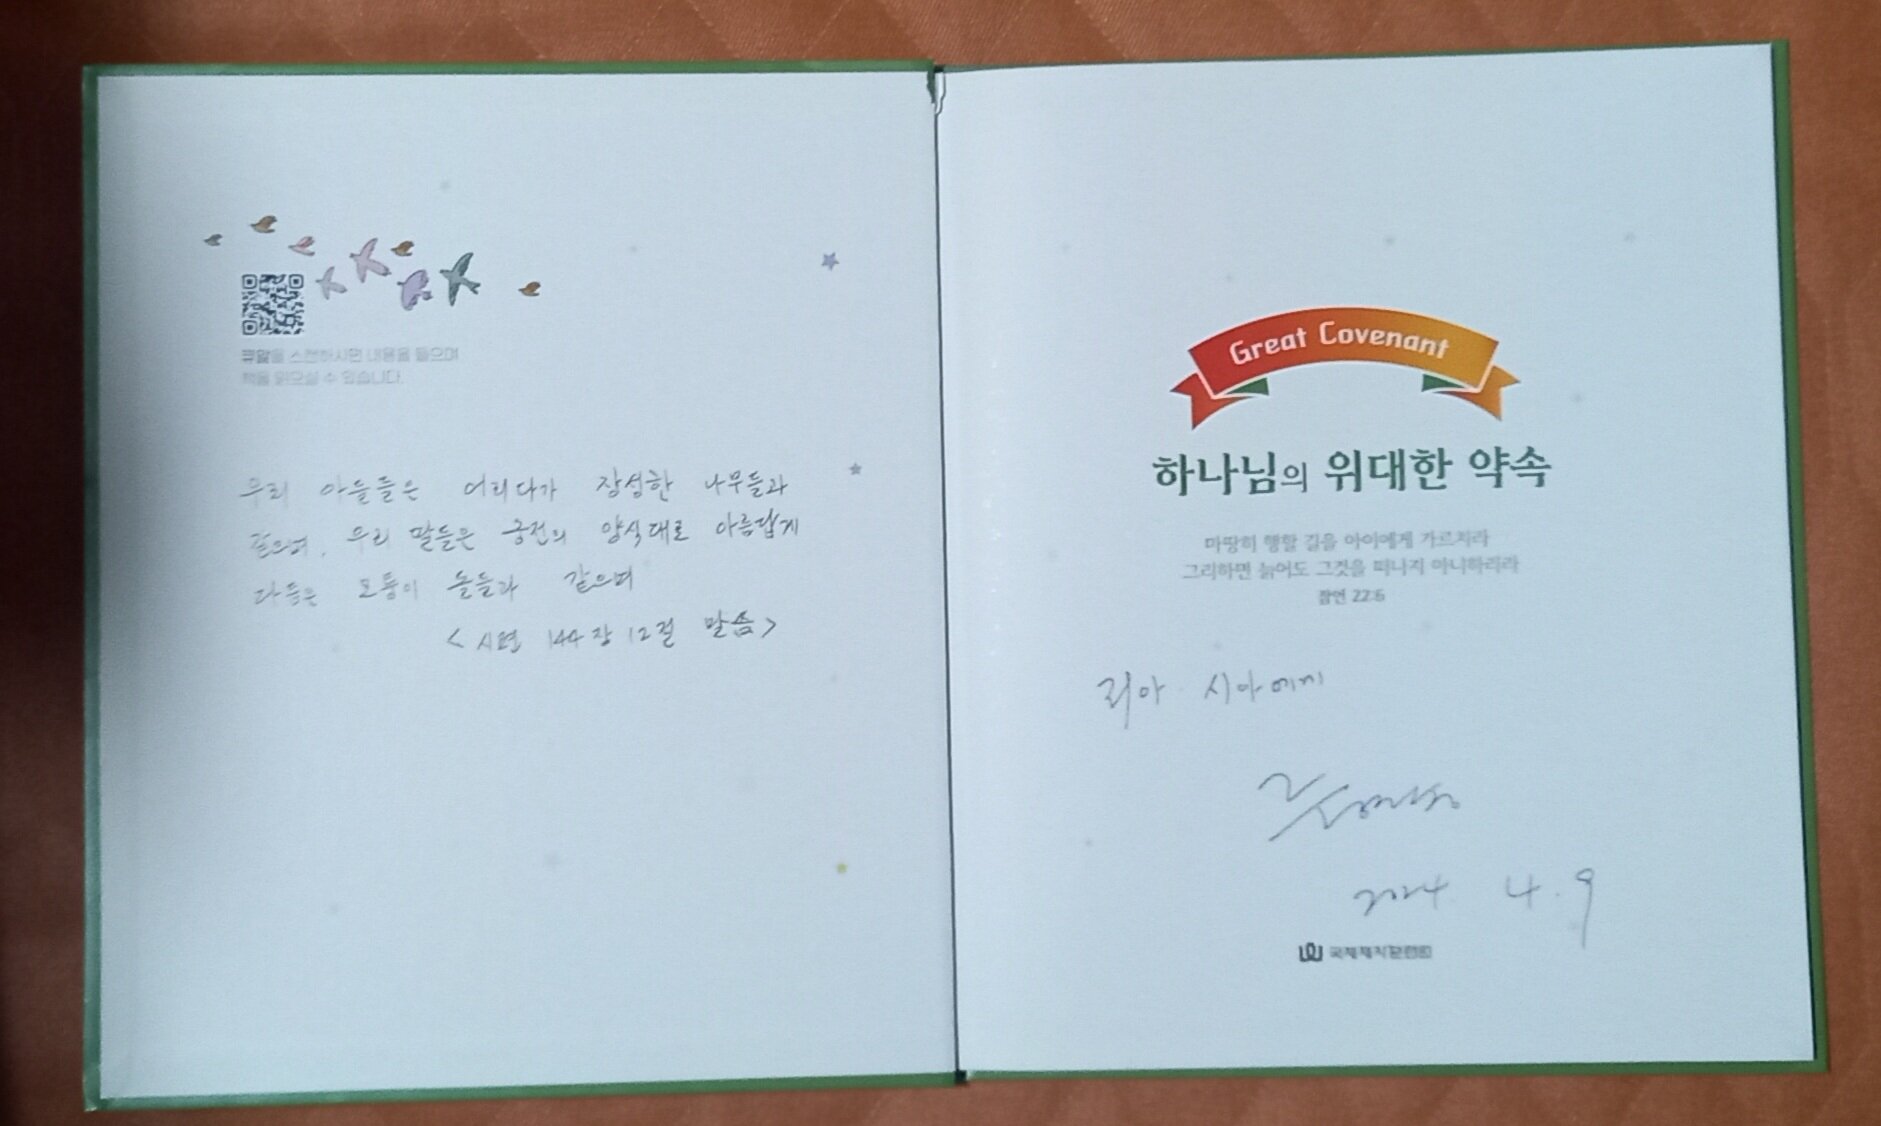 큐알을 스캔하시면 내용을 들으며
책을 읽으실 수 있습니다.
우리 아들들은 어리다가 장성한 나무들과
같으며, 우리 딸들은 궁전의 양식대로 아름답게
다듬은 모퉁이 돌들과 같으며
<시편 144장 12절 말씀>
Great Covenant
하나님의 위대한 약속
마땅히 행할 길을 아이에게 가르치라
그리하면 늙어도 그것을 떠나지 아니하리라
잠언 22:6
리아 시아에게
2024 4.9
국제제자훈련원